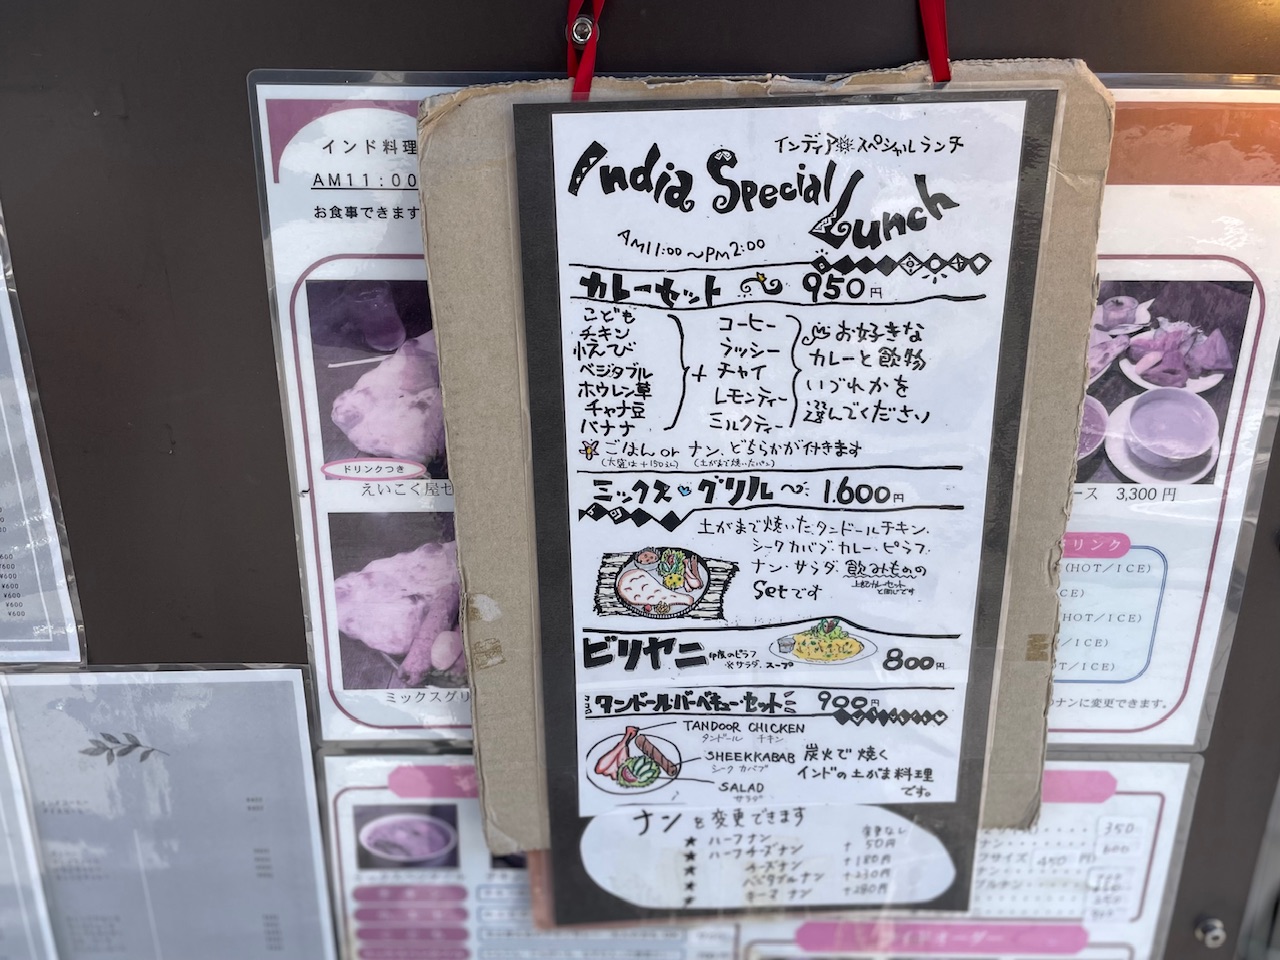 インド料理
AM11:00
お食事できます
ドリンクつき
えいこく屋セ
ミックスグリ
インディア スペシャルランチ
India Special Lunch
AM11:00～PM2:00
カレーセット 950円
こども
チキン
小えび
ベジタブル
ホウレン草
チャナ豆
バナナ
+
コーヒー
ラッシー
チャイ
レモンティー
ミルクティー
お好きな
カレーと飲物
いづれかを
選んでください
ごはん or ナン、どちらかが付きます
(大盛は+150えん) (土がまで焼いたパン)
ミックス グリル 1.600円
土がまで焼いたタンドールチキン、
シークカバブ、カレー、ピラフ、
ナン・サラダ、飲みものの
上記カレーセットと同じです
Setです
ビリヤニ 印度のピラフ
※サラダ、スープ
800円
タンドール・バーベキュー・セット 900円
TANDOOR CHICKEN
タンドール チキン
SHEEKKABAB
シーク カバブ
SALAD
サラダ
炭火で焼く
インドの土がま料理
です。
ナンを変更できます
★ ハーフナン 変更なし
★ ハーフチーズナン +50円
★ チーズナン +180円
★ ベジタブルナン +230円
★ キーマナン +280円
ース 3,300円
ドリンク
(HOT/ICE)
CE)
HOT/ICE)
/ICE)
T/ICE)
のナンに変更できます。
350
600
フサイズ 450円
ナン
プルナン
サイドオーダー
¥600
¥600
¥600
¥600
¥600